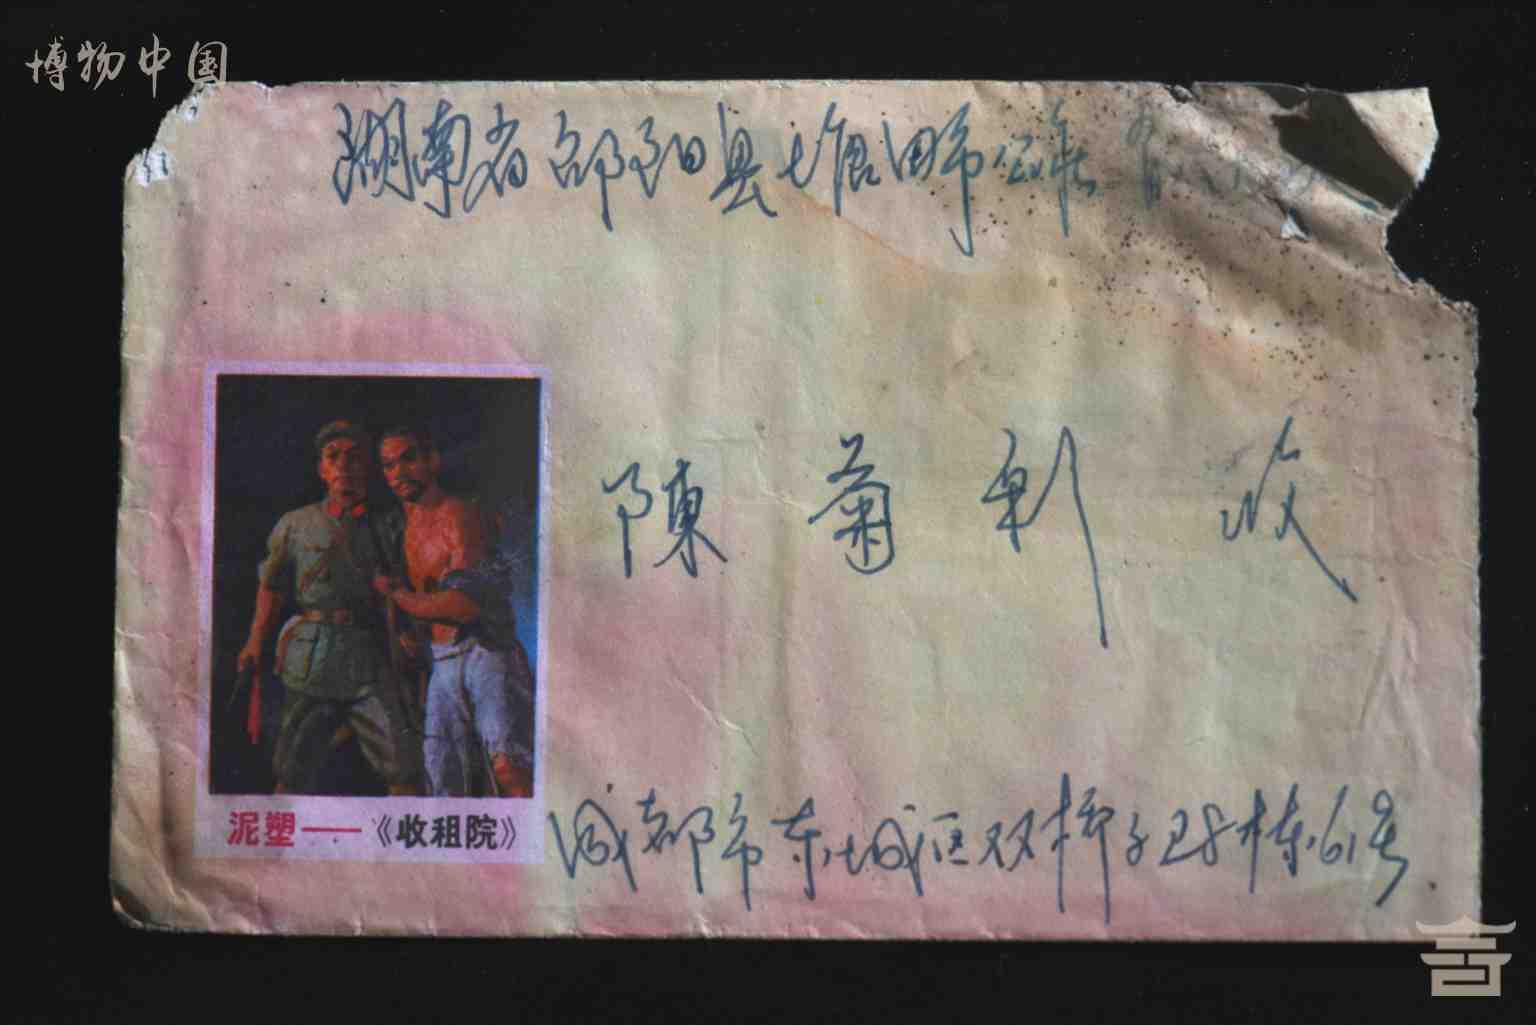 博物中国
湖南省邵阳县塘田市公社
陳菊利 收
泥塑——《收租院》
成都市东城区双桥子28栋61号